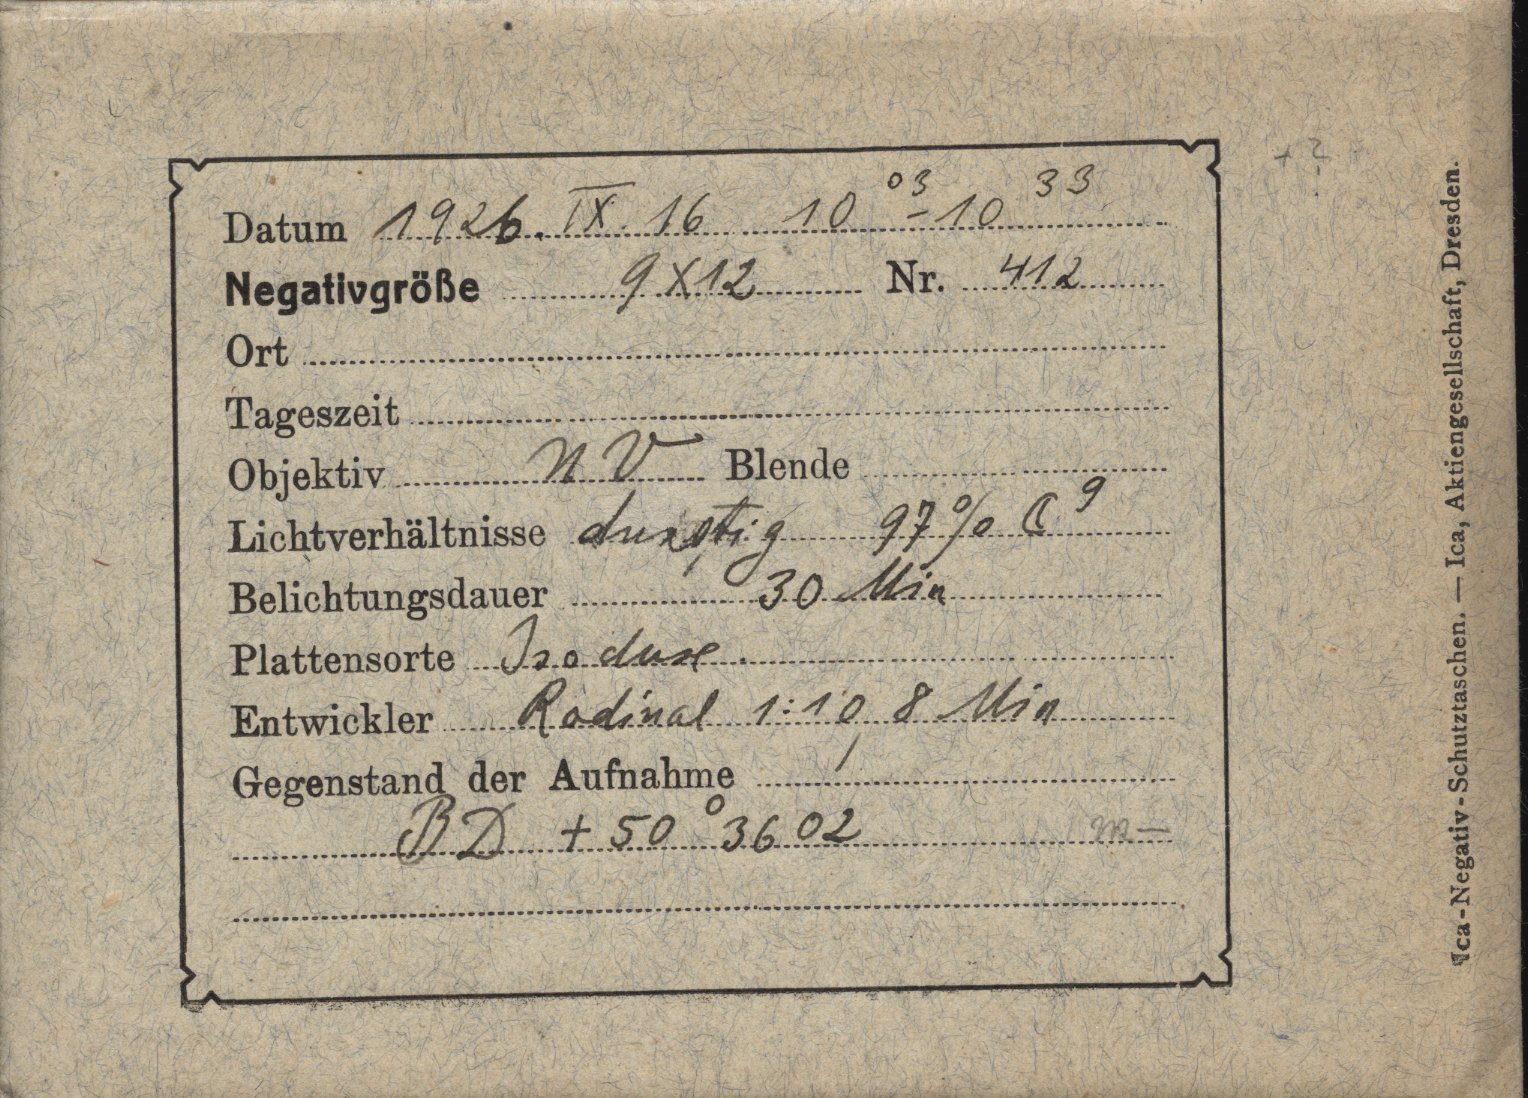 + ?
Datum 1926. IX. 16 10 03 - 10 33
Negativgröße 9X12 Nr. 412
Ort
Tageszeit
Objektiv NV Blende
Lichtverhältnisse dunstig 97% ☾ 9
Belichtungsdauer 30 Min
Plattensorte Isodux.
Entwickler Rodinal 1:10, 8 Min
Gegenstand der Aufnahme
BD + 50° 3602 m—
Ica-Negativ-Schutztaschen. — Ica, Aktiengesellschaft, Dresden.